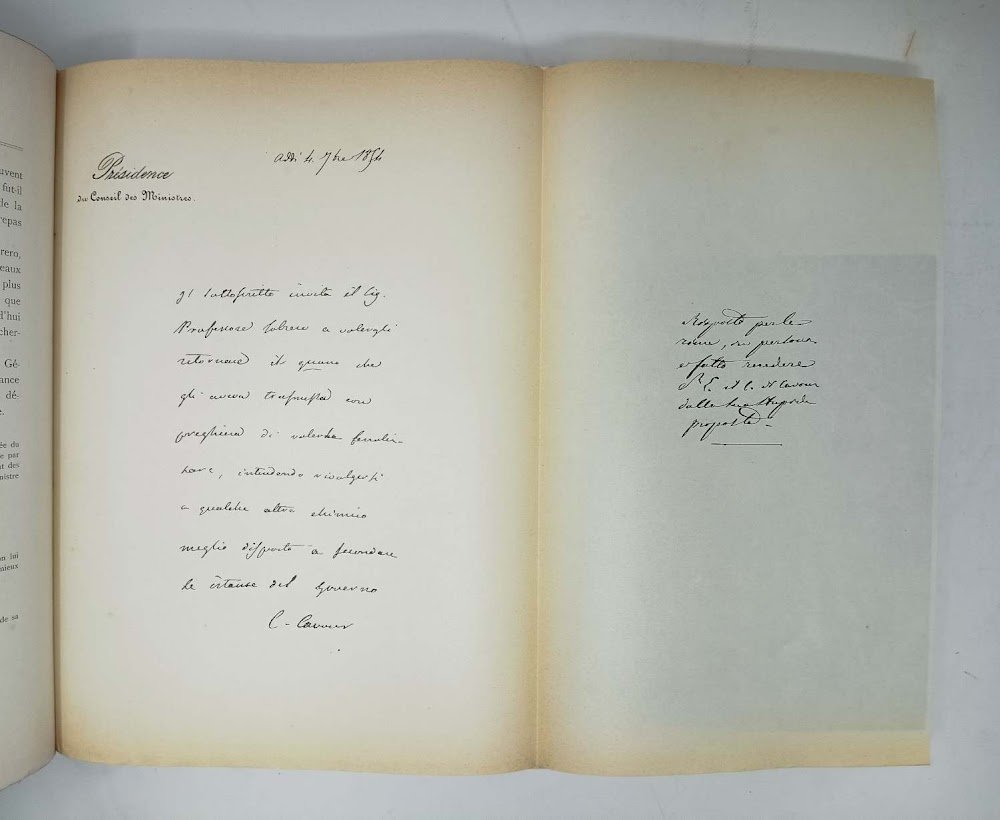 uvent
fut-il
de la
repas
rero,
eaux
plus
que
d'hui
cher-
Gé-
ance
dé-
e.
ée du
e par
nt des
nistre
on lui
mieux
de sa
Présidence
du Conseil des Ministres.
Addì 4. 7bre 1854
Il Sottoscritto invita il Sig.
Professore Sobrero a volergli
ritornare il guano che
gli aveva trasmesso con
preghiera di volerlo
, intendendo rivolgersi
a qualche altro chimico
meglio disposto a secondare
le istanze del Governo
C. Cavour
Risposto
, di persona
e fatto
S. E. il C. di Cavour
dalla sua
proposta